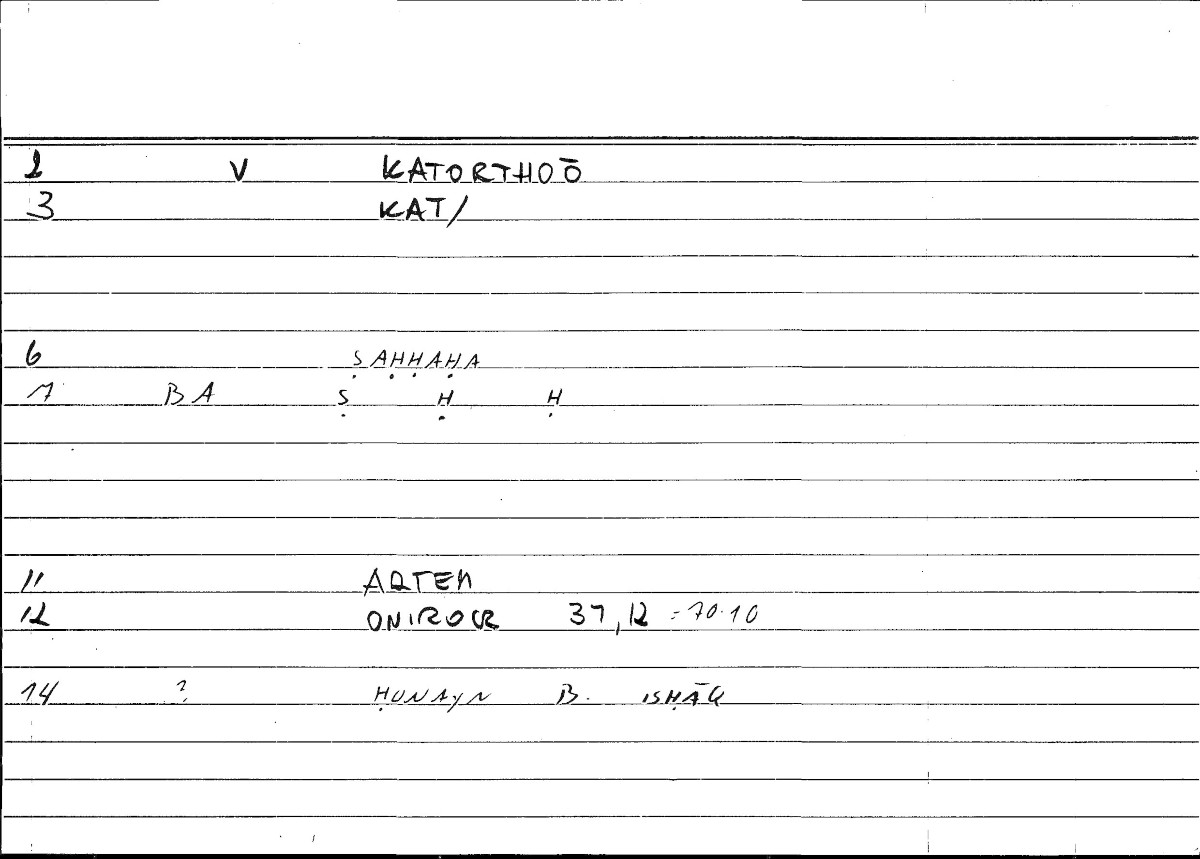 2 V KATORTHOŌ
3 KAT/
6 ṢAḤḤAḤA
7 BA Ṣ Ḥ Ḥ
11 ARTEM
12 ONIROCR 37,12 = 70.10
14 ? ḤUNAYN B. ISḤĀQ